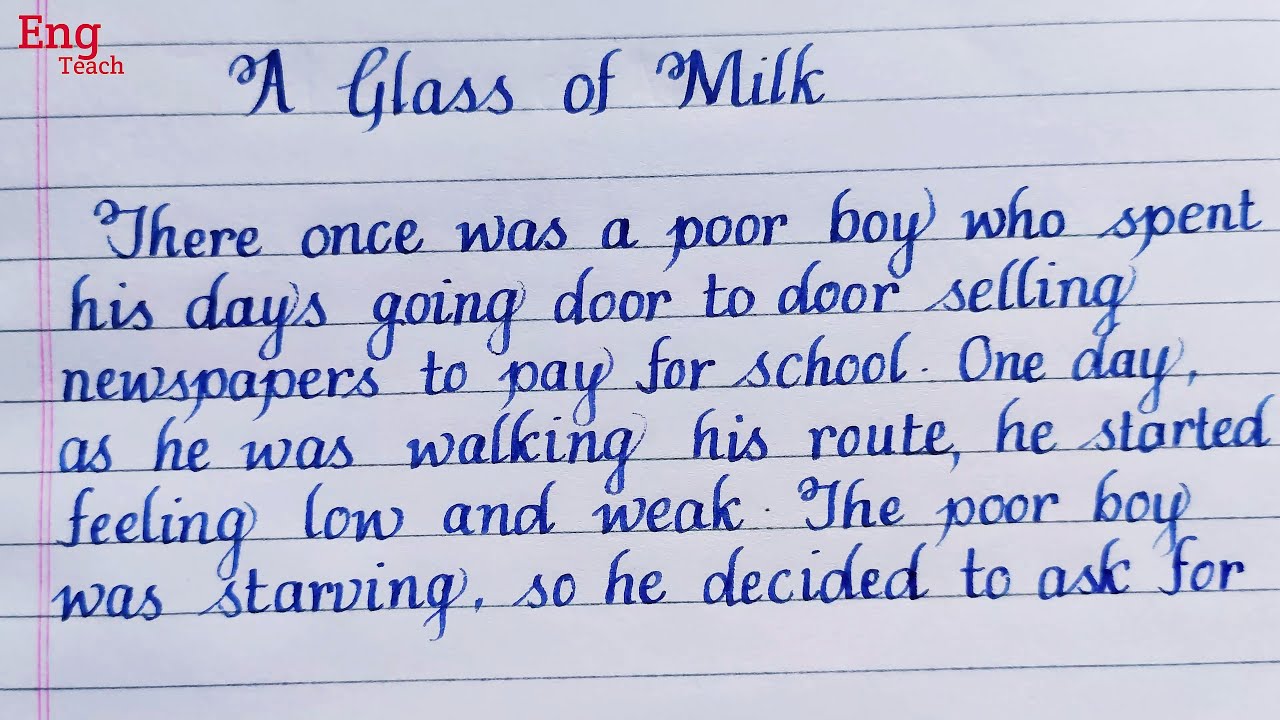 Eng
Teach
A Glass of Milk
There once was a poor boy who spent
his days going door to door selling
newspapers to pay for school. One day,
as he was walking his route, he started
feeling low and weak. The poor boy
was starving, so he decided to ask for